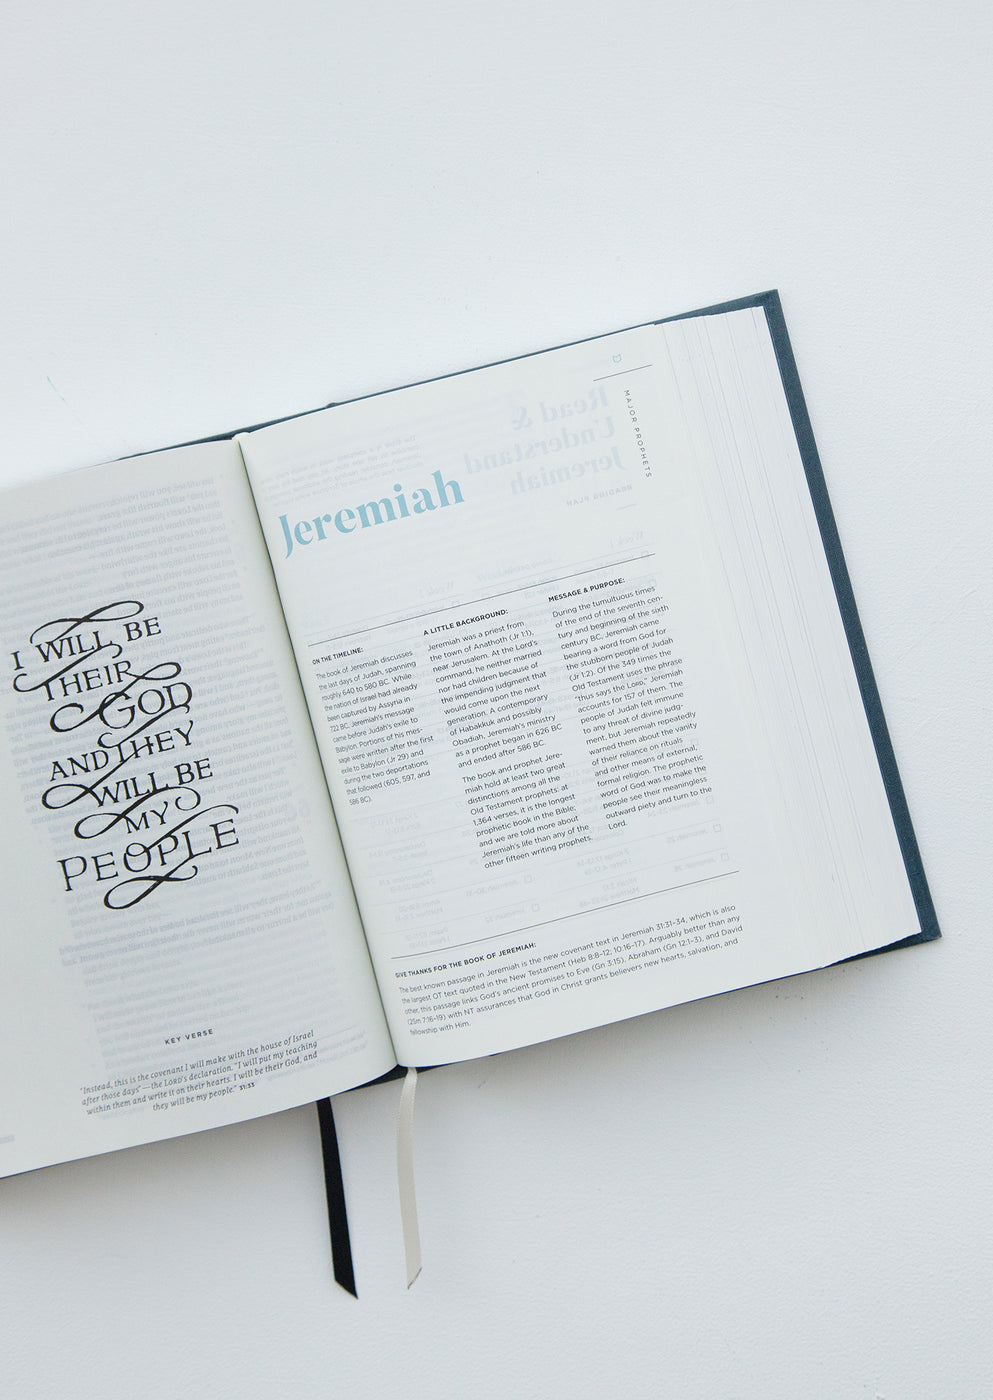 I WILL BE
THEIR
GOD
AND THEY
WILL BE
MY
PEOPLE
KEY VERSE
"Instead, this is the covenant I will make with the house of Israel
after those days"—the LORD's declaration. "I will put my teaching
within them and write it on their hearts. I will be their God, and
they will be my people." 31:33
MAJOR PROPHETS
Jeremiah
ON THE TIMELINE:
The book of Jeremiah discusses
the last days of Judah, spanning
roughly 640 to 580 BC. While
the nation of Israel had already
been captured by Assyria in
722 BC, Jeremiah's message
came before Judah's exile to
Babylon. Portions of his mes-
sage were written after the first
exile to Babylon (Jr 29) and
during the two deportations
that followed (605, 597, and
586 BC).
A LITTLE BACKGROUND:
Jeremiah was a priest from
the town of Anathoth (Jr 1:1),
near Jerusalem. At the Lord's
command, he neither married
nor had children because of
the impending judgment that
would come upon the next
generation. A contemporary
of Habakkuk and possibly
Obadiah, Jeremiah's ministry
as a prophet began in 626 BC
and ended after 586 BC.
The book and prophet Jere-
miah hold at least two great
distinctions among all the
Old Testament prophets: at
1,364 verses, it is the longest
prophetic book in the Bible;
and we are told more about
Jeremiah's life than any of the
other fifteen writing prophets.
MESSAGE & PURPOSE:
During the tumultuous times
of the end of the seventh cen-
tury and beginning of the sixth
century BC, Jeremiah came
bearing a word from God for
the stubborn people of Judah
(Jr 1:2). Of the 349 times the
Old Testament uses the phrase
"thus says the LORD," Jeremiah
accounts for 157 of them. The
people of Judah felt immune
to any threat of divine judg-
ment, but Jeremiah repeatedly
warned them about the vanity
of their reliance on rituals
and other means of external,
formal religion. The prophetic
word of God was to make the
people see their meaningless
outward piety and turn to the
Lord.
GIVE THANKS FOR THE BOOK OF JEREMIAH:
The best known passage in Jeremiah is the new covenant text in Jeremiah 31:31–34, which is also
the largest OT text quoted in the New Testament (Heb 8:8–12; 10:16–17). Arguably better than any
other, this passage links God's ancient promises to Eve (Gn 3:15), Abraham (Gn 12:1–3), and David
(2Sm 7:16–19) with NT assurances that God in Christ grants believers new hearts, salvation, and
fellowship with Him.